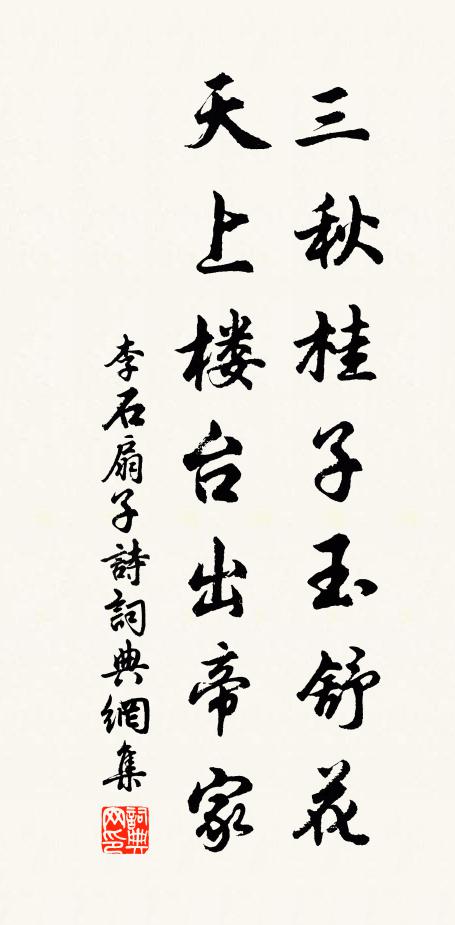 三秋桂子玉舒花
天上楼台出帝家
李石扇子詩詞典網集
詞典网印